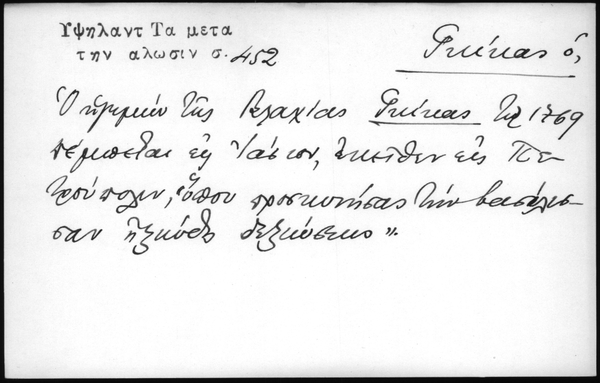 Υψηλαντ Τα μετα
την αλωσιν σ. 452
Γκίκας ὁ,
Ὁ ἡγεμὼν τῆς Βλαχίας Γκίκας τῷ 1769
πέμπεται εἰς Ἰάσιον, ἐκεῖθεν εἰς Πε-
τρούπολιν, "ὅπου προσκυνήσας τὴν βασίλισ-
σαν ἠξιώθη δεξιώσεως".